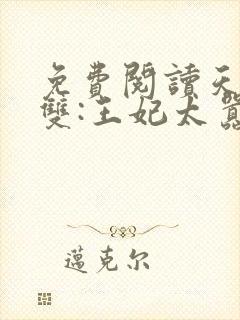 免費閱讀天
雙:王妃太囂
邁克尔